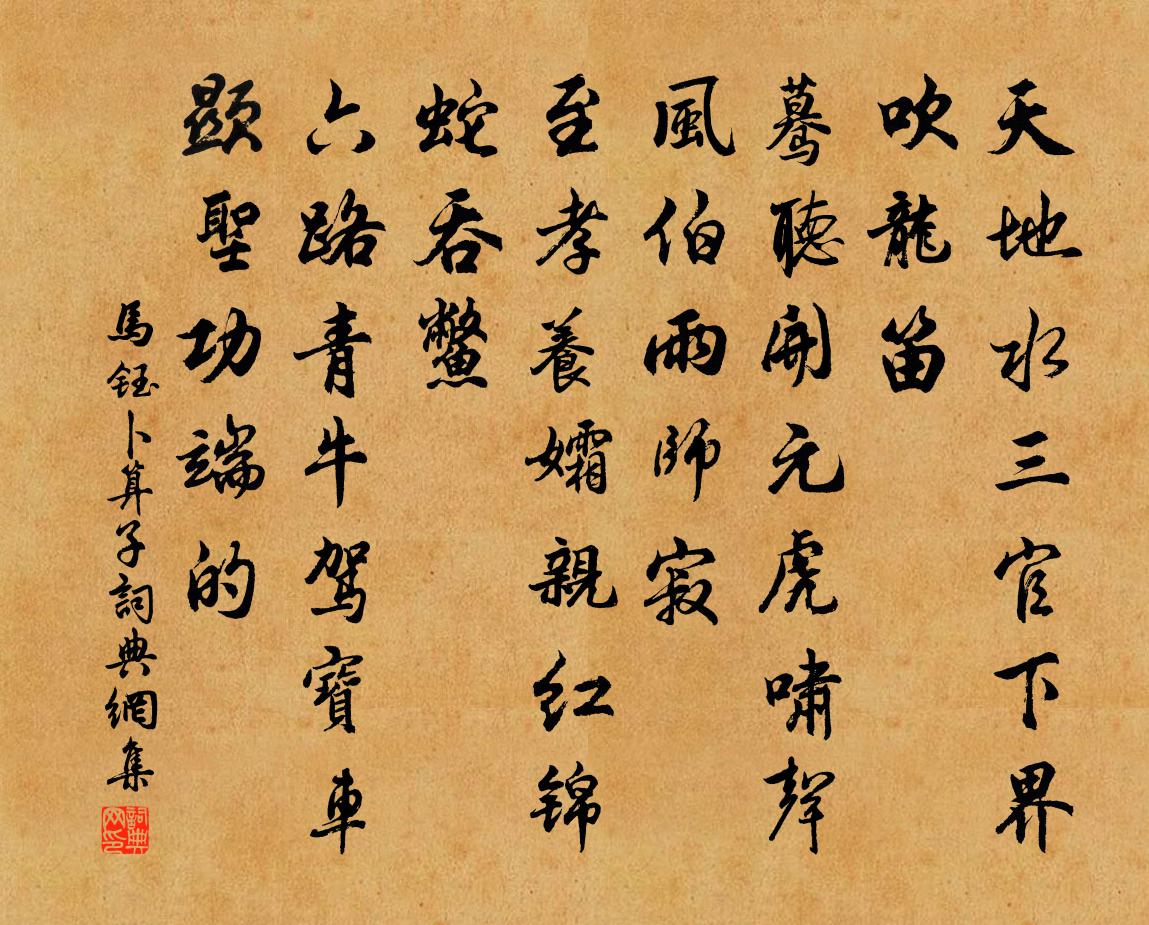 天地水三官下界
吹龍笛
驀聽開元虎嘯聲
風伯雨師寂
至孝養孀親紅錦
蛇吞鱉
六路青牛駕寶車
顯聖功端的
馬鈺卜算子詞典網集
詞典网印